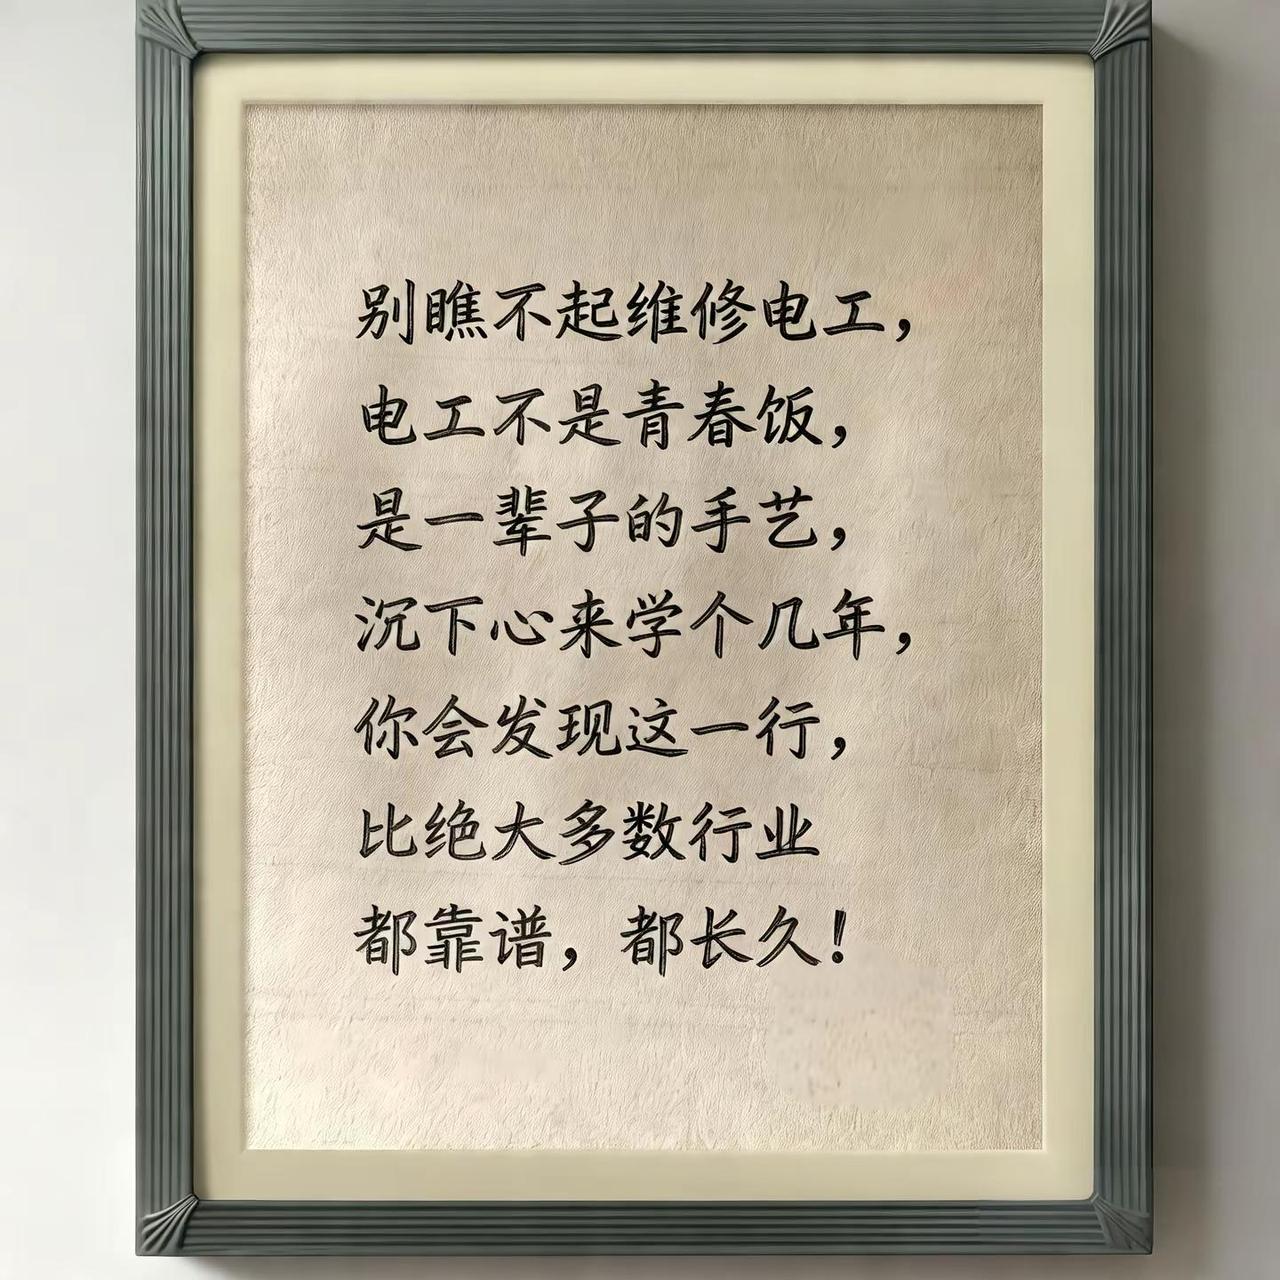 别瞧不起维修电工，
电工不是青春饭，
是一辈子的手艺，
沉下心来学个几年，
你会发现这一行，
比绝大多数行业
都靠谱，都长久！